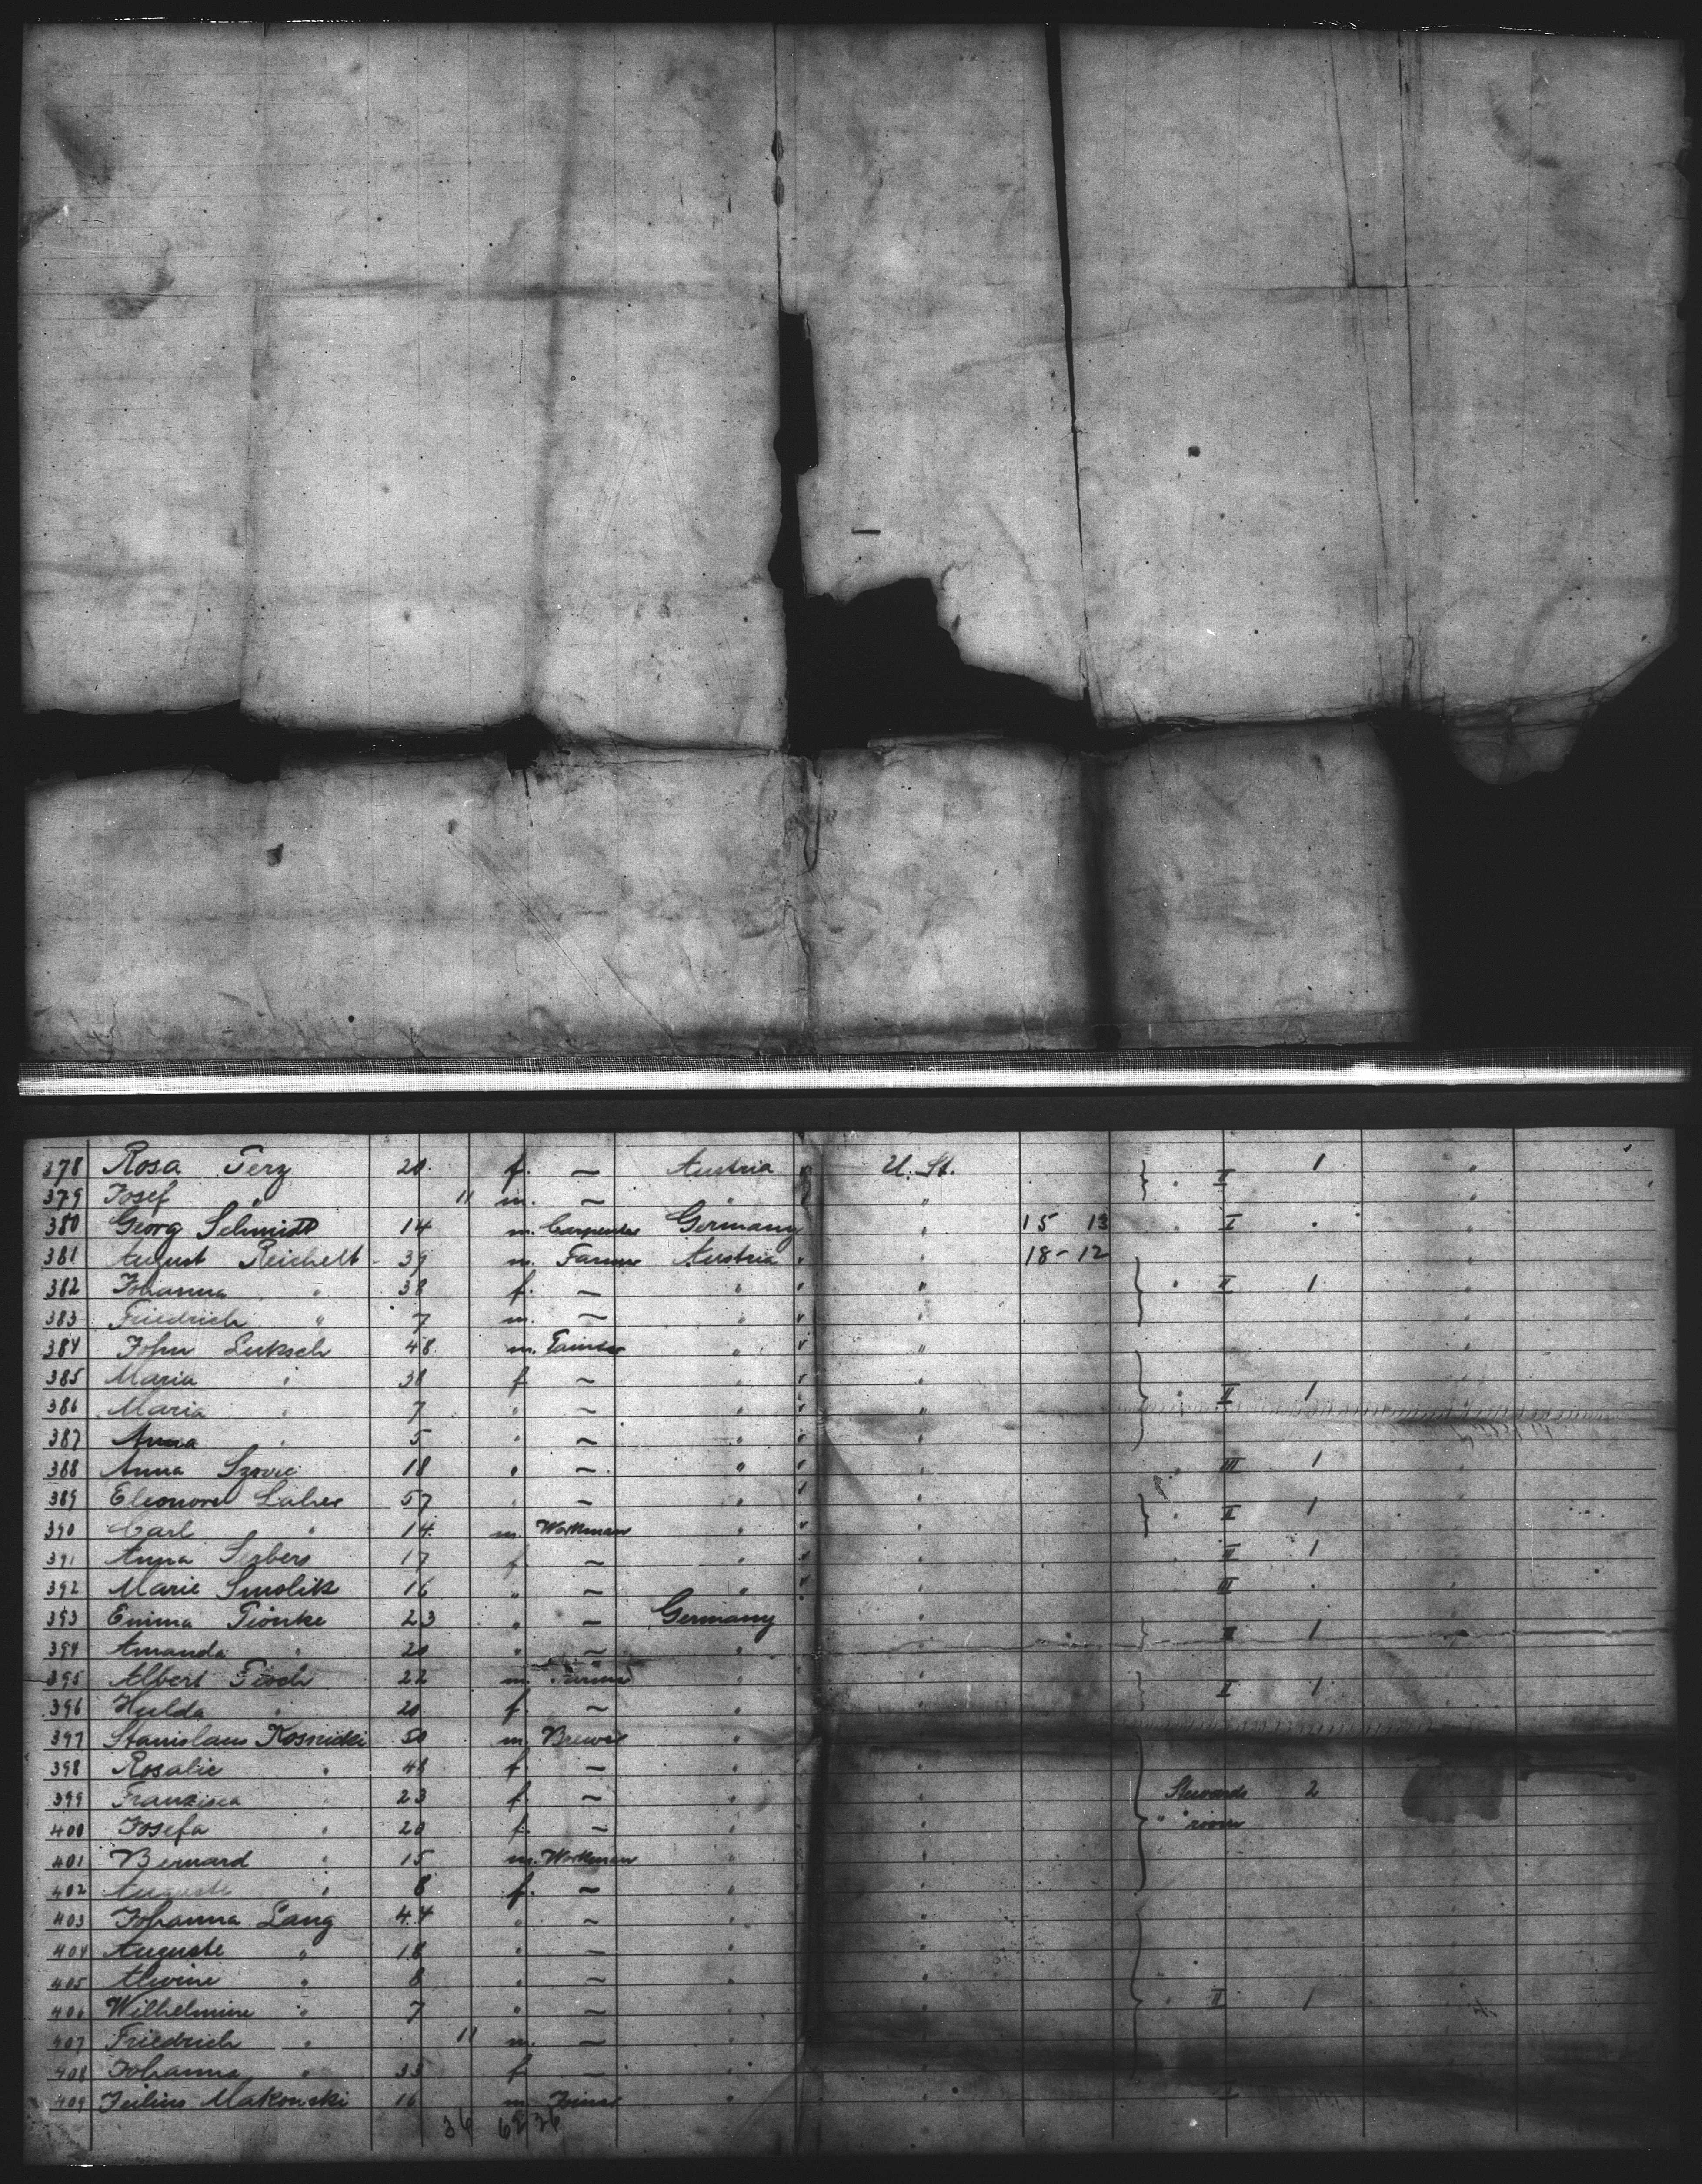 378 Rosa Terz 20 f. — Austria U. St. II 1
379 Josef " 11 m. — " "
380 Georg Schmidt 14 m. Carpenter Germany " 15 13 " I "
381 August Reichelt 39 m. Farmer Austria " 18-12
382 Johanna " 38 f. — " " " II 1
383 Friedrich " 7 m. — " "
384 John Luksch 48 m. " "
385 Maria " 38 f — " "
386 Maria " 7 " — " " " II 1
387 Anna " 5 " — " "
388 Anna 18 " — " " " III 1
389 Eleonore Laher 57 " — " "
390 Carl " 14 m. Workman " " " II 1
391 Anna Serbers 17 f — " " " II 1
392 Marie Smolik 16 " — " " " III "
393 Emma 23 " — Germany "
394 Amanda " 20 " — " " II 1
395 Albert 22 m. Farmer " "
396 Hulda " 20 f. — " " I 1
397 Stanislaus 50 m. Brewer " "
398 Rosalie " 48 f. — " "
399 Franzisca " 23 f. — " " Stewards 2
400 Josefa " 20 f. — " " " " room
401 Bernard " 15 m. Workman " "
402 Auguste " 8 f. — " "
403 Johanna Lang 44 " — " "
404 Auguste " 18 " — " "
405 Alwine " 8 " — " "
406 Wilhelmine " 7 " — " " " II 1
407 Friedrich " 11 m. — " "
408 Johanna " 35 f — " "
409 Julius Makowski 16 m " " I
36 36